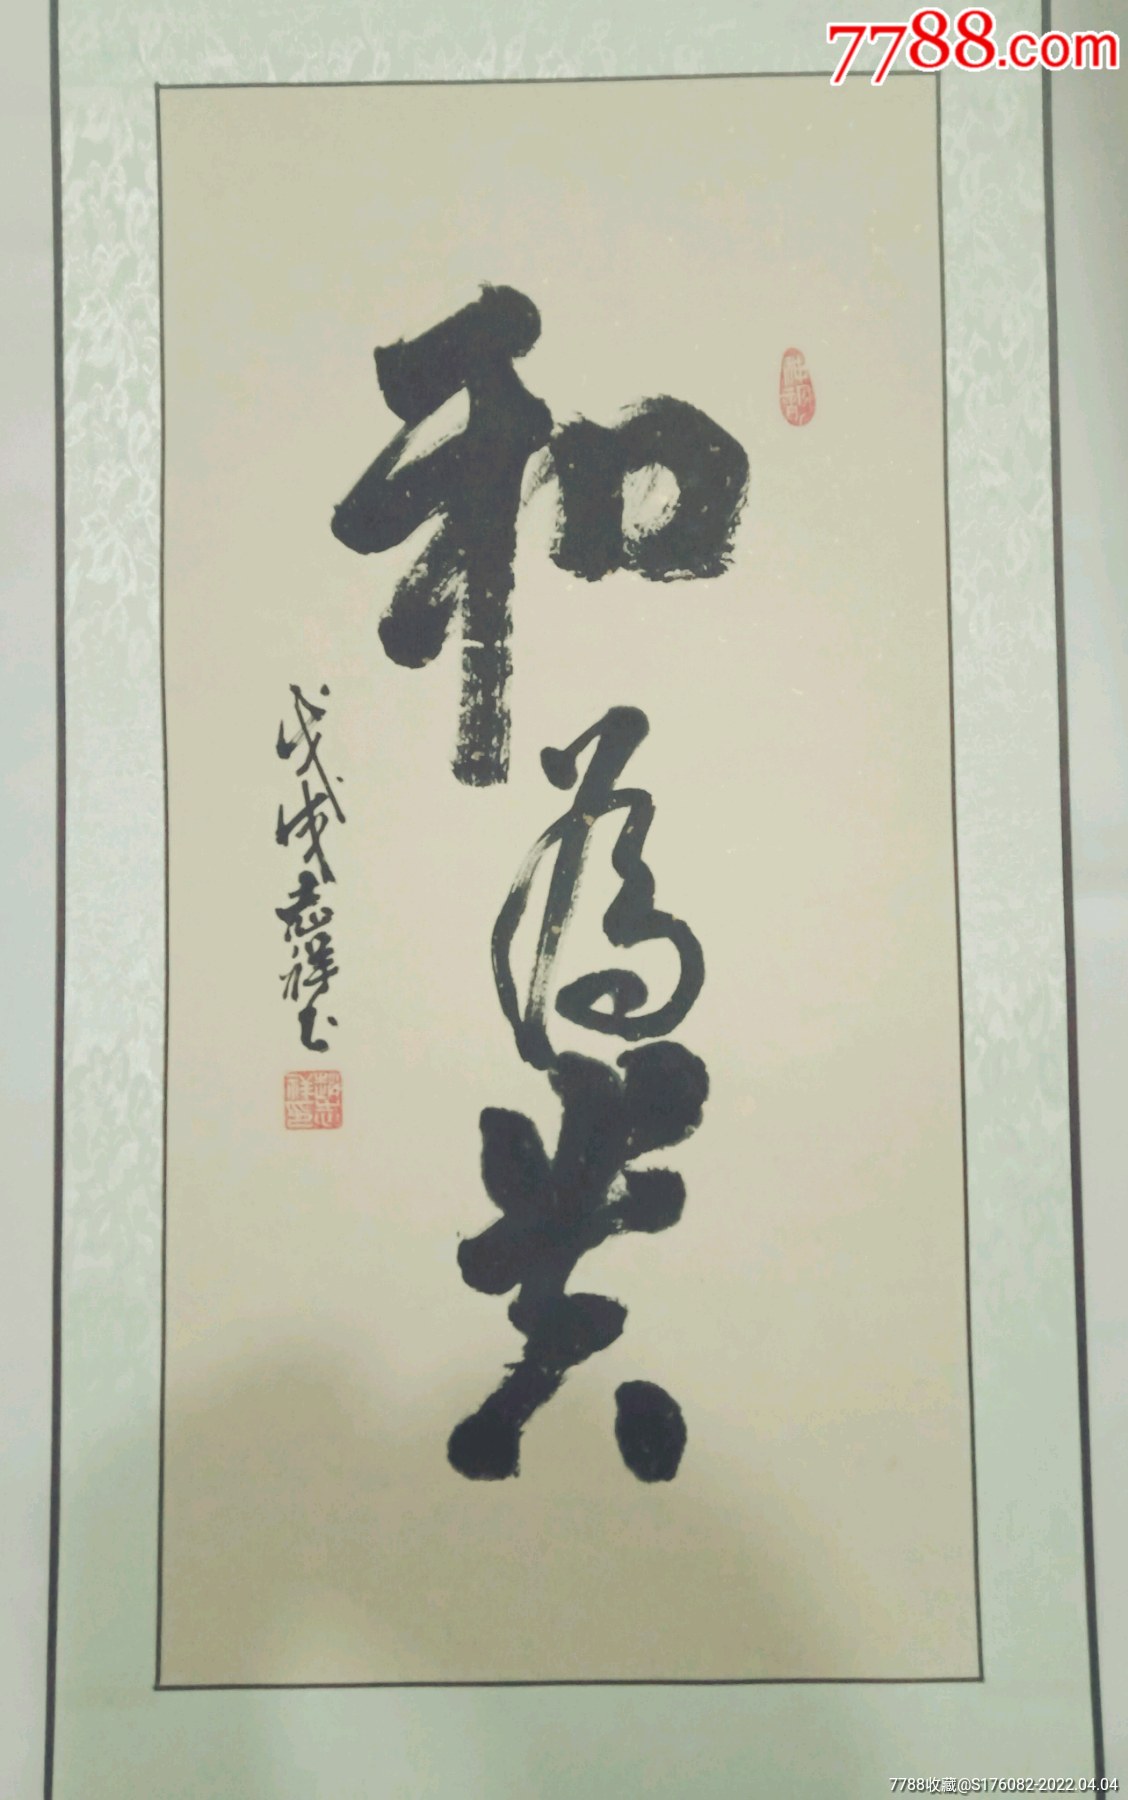 7788.com
和為貴
戊戌志祥书
7788收藏@S176082-2022.04.04